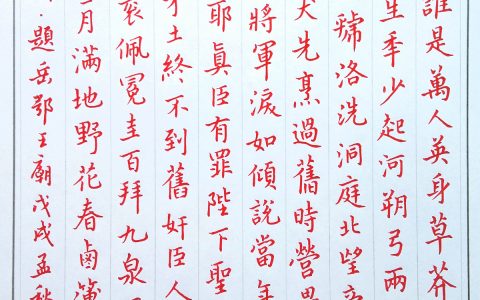 誰是萬人英身草莽
生秊少起河朔弓兩
虢洛洗洞庭北望
犬先烹過舊時營
將軍淚如傾說當年
耶眞臣有罪陛下聖
土終不到舊奸臣人
袞佩冕圭百拜九泉
月滿地野花春鹵簿
·題岳鄂王廟戊戌孟秋